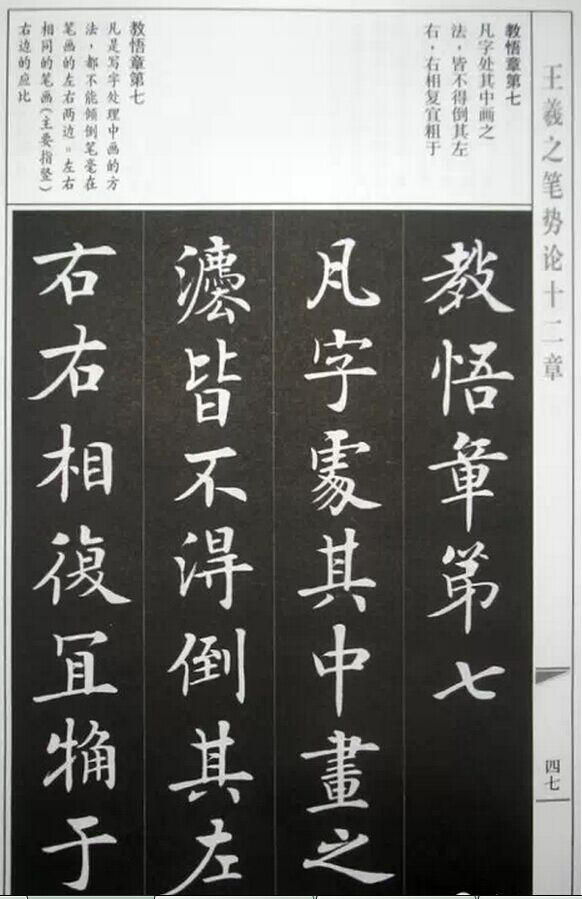 王羲之笔势论十二章
教悟章第七
凡字处其中画之
法，皆不得倒其左
右，右相复宜粗于
教悟章第七
凡是写字处理中画的方
法，都不能倾倒笔毫在
笔画的左右两边。左右
相同的笔画（主要指竖）
右边的应比
教悟章第七
凡字處其中畫之
灋皆不得倒其左
右右相復冝觕于
四七